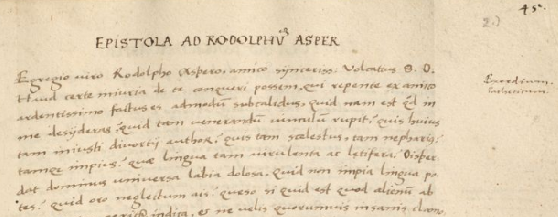 45.
2.)
EPISTOLA AD RODOLPHŨ ASPER
Egregio uiro Rodolpho Aspero, amico synceriss. Volcatius S. D.
Haud certe iniuria de te conqueri possem, qui repente ex amico
ardentissimo factus es admodum subcalidus, quid nam est qd in
me desyderas, quid tam uenerandum uinculum rupit, quis huius
tam iniusti diuortij author, quis tam scelestus, tam nepharius,
tamque impius, quæ lingua tam uirulenta ac letifera. Disper
dat dominus uniuersa labia dolosa, quid non impia lingua po
test, quid oro neglectum ais, queso si quid est quod alienum ab
indita, et ne uelis quorumuis insanis clamo
Exordium